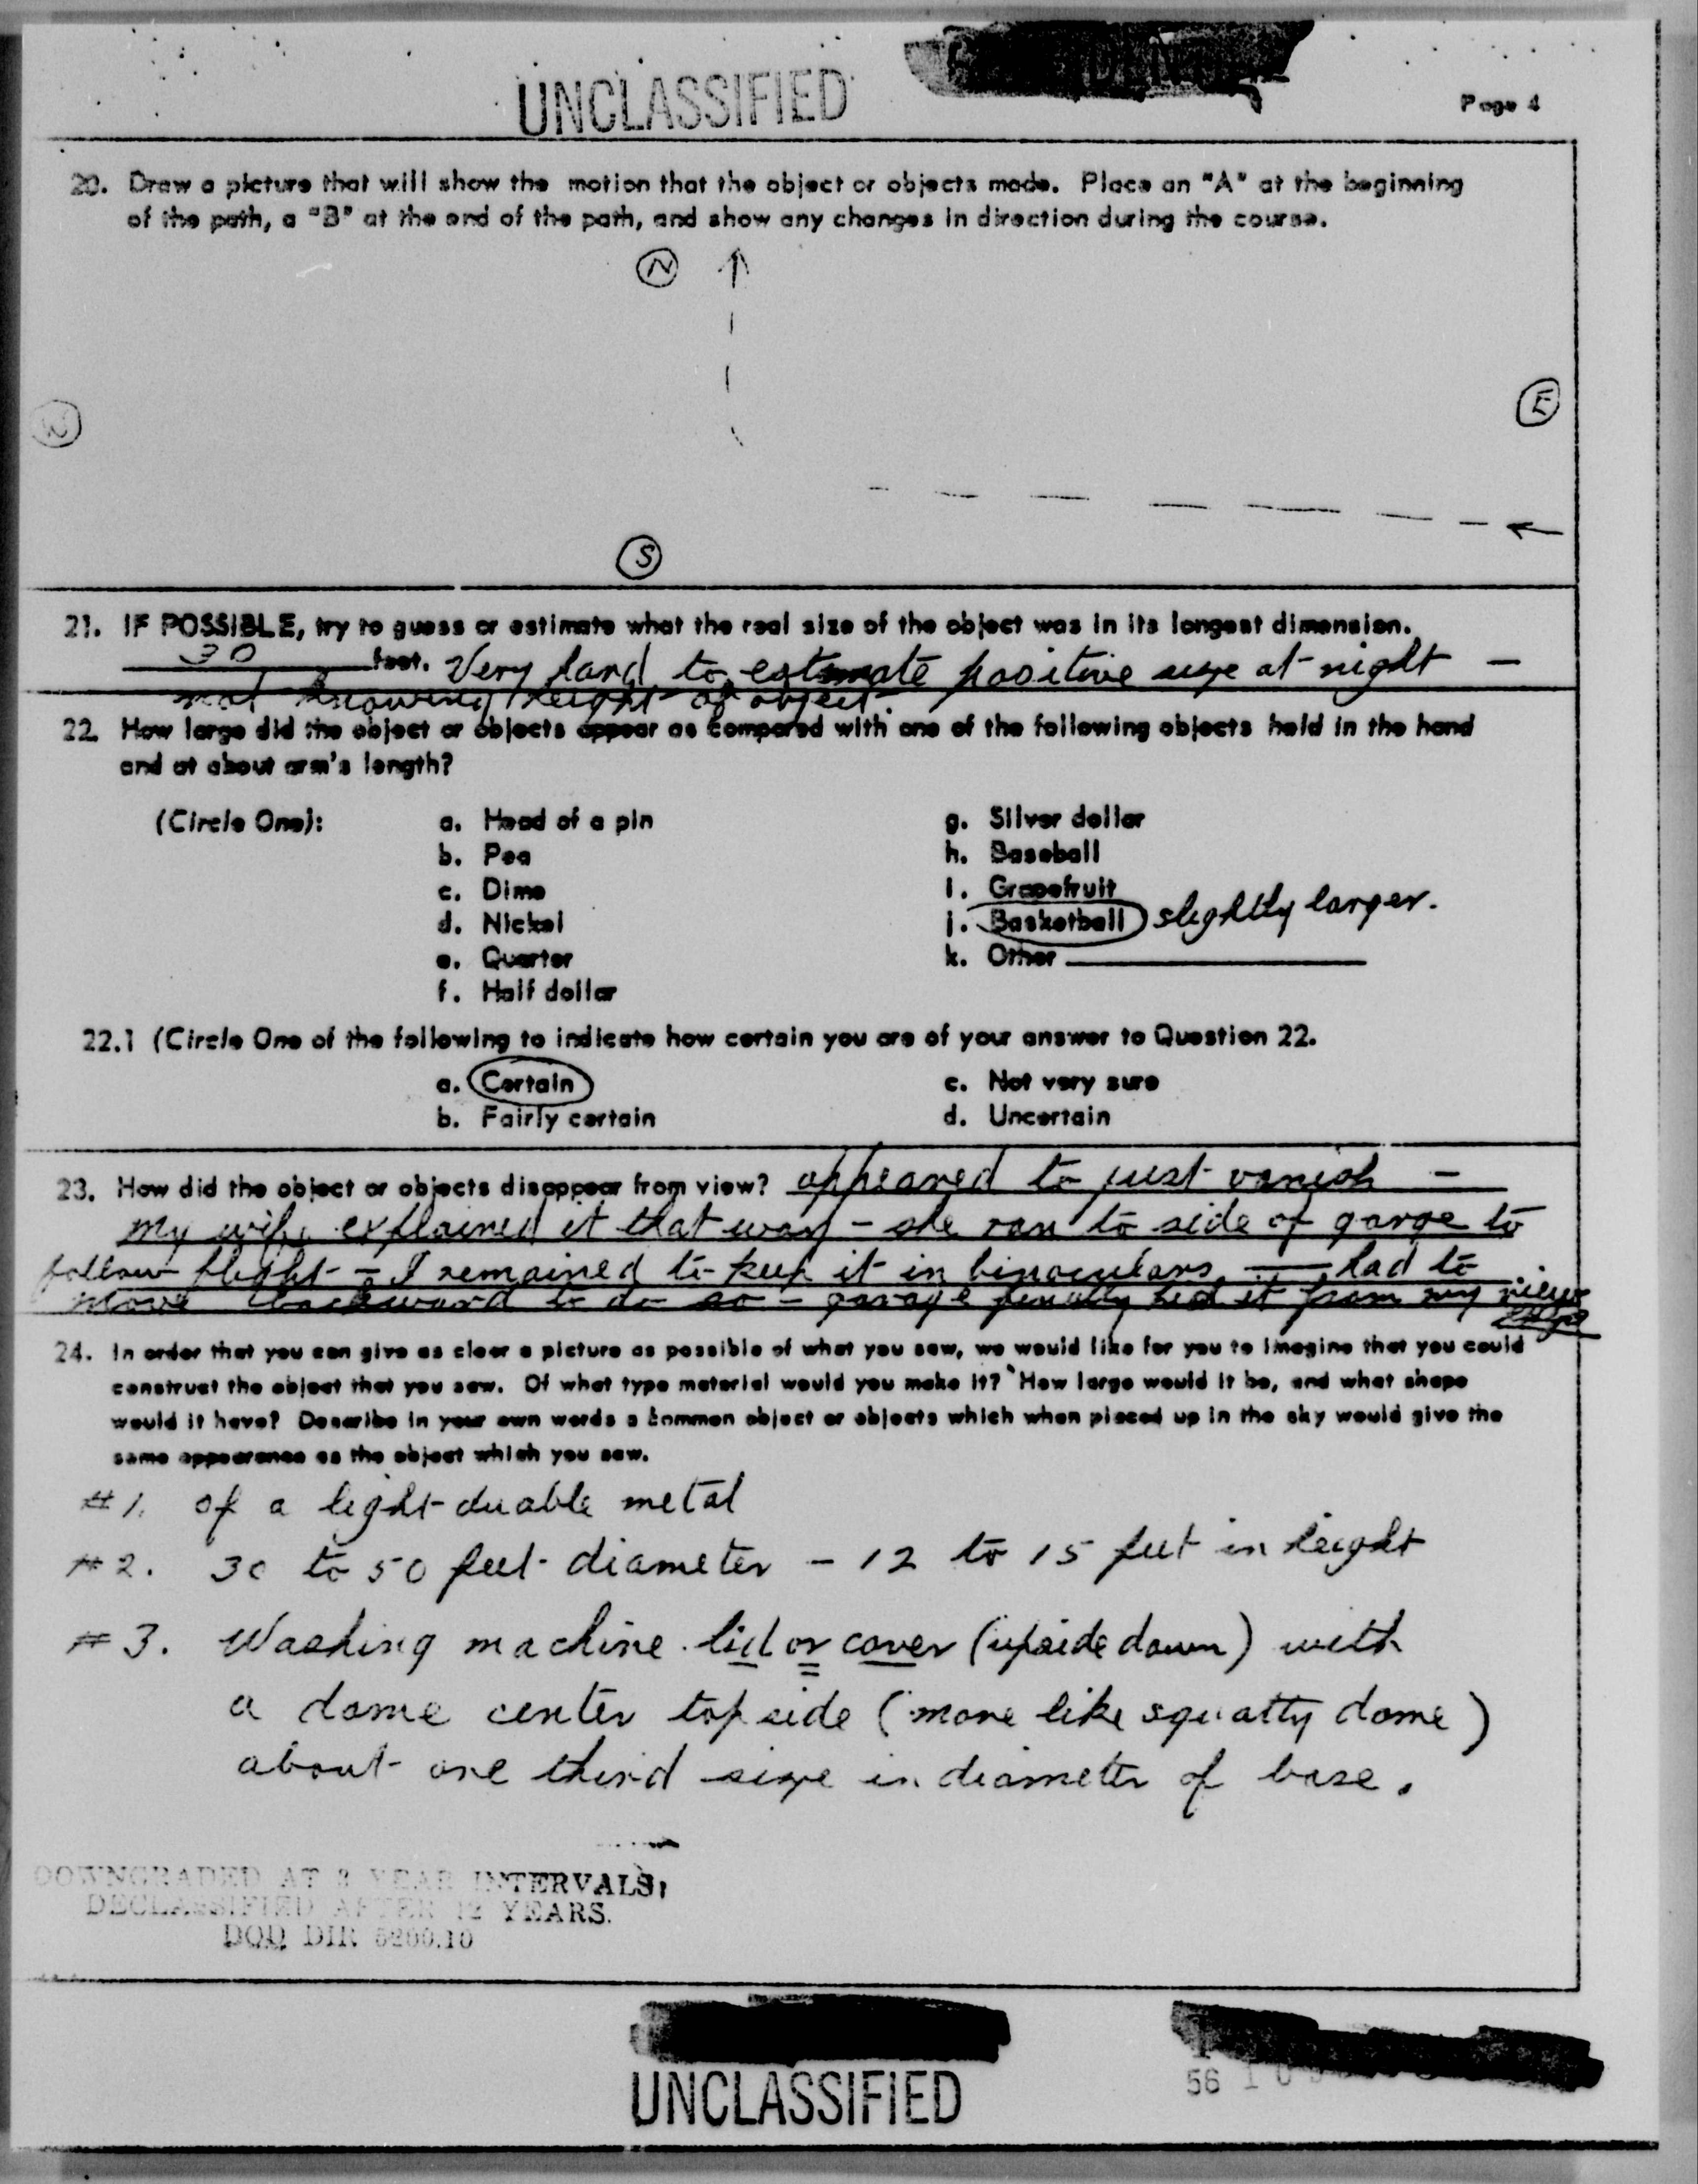 UNCLASSIFIED
Page 4
20. Draw a picture that will show the motion that the object or objects made. Place an "A" at the beginning
of the path, a "B" at the end of the path, and show any changes in direction during the course.
N
W
E
S
21. IF POSSIBLE, try to guess or estimate what the real size of the object was in its longest dimension.
30 feet. Very hard to estimate positive size at night —
not knowing height of object.
22. How large did the object or objects appear as compared with one of the following objects held in the hand
and at about arm's length?
(Circle One): a. Head of a pin g. Silver dollar
b. Pea h. Baseball
c. Dime i. Grapefruit
d. Nickel j. Basketball slightly larger.
e. Quarter k. Other
f. Half dollar
22.1 (Circle One of the following to indicate how certain you are of your answer to Question 22.
a. Certain c. Not very sure
b. Fairly certain d. Uncertain
23. How did the object or objects disappear from view? appeared to just vanish —
my wife explained it that way - she ran to side of garge to
follow flight - I remained to keep it in binoculars — had to
move backward to do so - garage hid it from my view
24. In order that you can give as clear a picture as possible of what you saw, we would like for you to imagine that you could
construct the object that you saw. Of what type material would you make it? How large would it be, and what shape
would it have? Describe in your own words a common object or objects which when placed up in the sky would give the
same appearance as the object which you saw.
#1. of a light duable metal
#2. 30 to 50 feet diameter - 12 to 15 feet in height
#3. Washing machine lid or cover (upside down) with
a dome center top side (more like squatty dome)
about one third size in diameter of base.
DOWNGRADED AT 3 YEAR INTERVALS;
DECLASSIFIED AFTER 12 YEARS.
DOD DIR 5200.10
UNCLASSIFIED
56